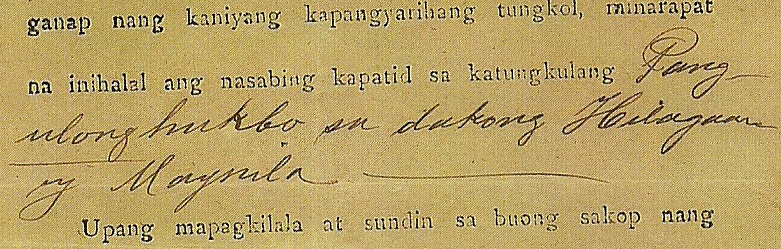 ganap nang kaniyang kapangyarihang tungkol, minarapat
na inihalal ang nasabing kapatid sa katungkulang Pang-
ulong hukbo sa dakong Hilagaan
ng Maynila
Upang mapagkilala at sundin sa buong sakop nang